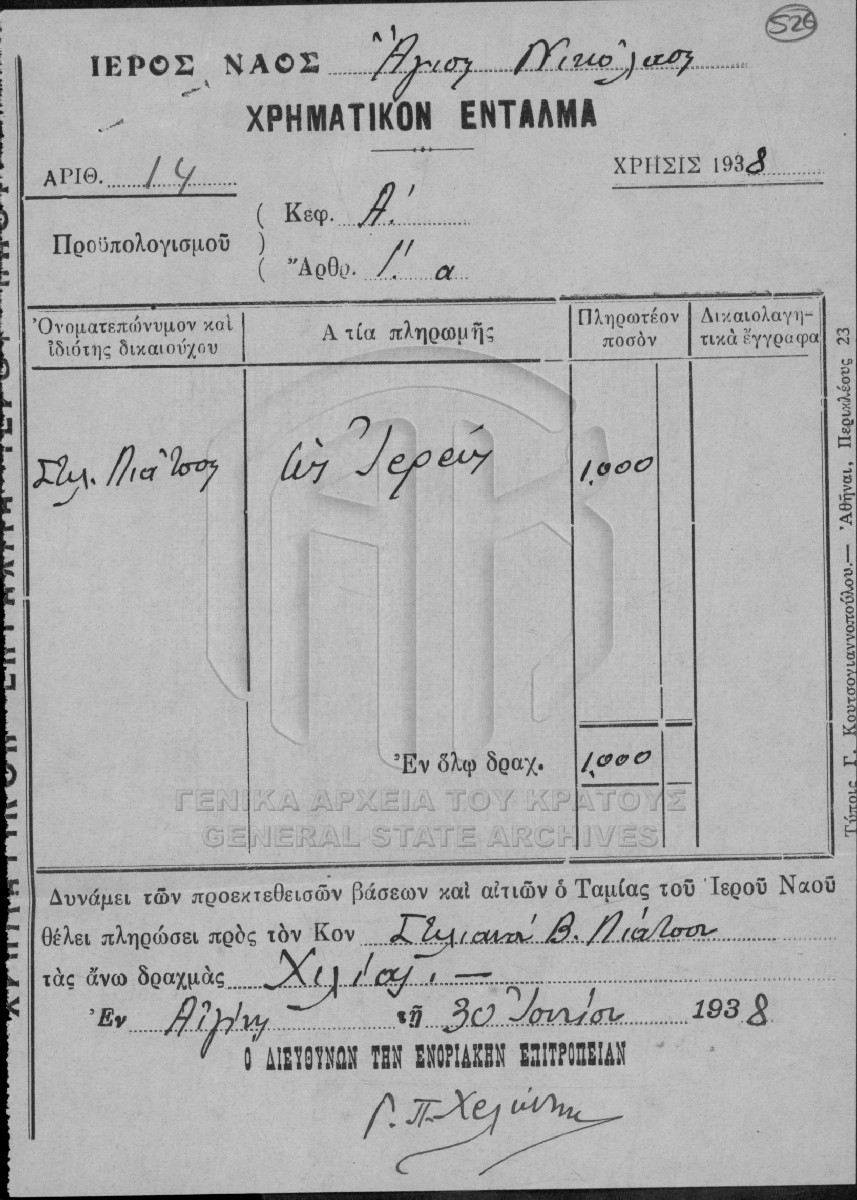 526
ΙΕΡΟΣ ΝΑΟΣ Ἁγίου Νικολάου
ΧΡΗΜΑΤΙΚΟΝ ΕΝΤΑΛΜΑ
ΑΡΙΘ. 14
ΧΡΗΣΙΣ 1938
Προϋπολογισμοῦ
Κεφ. Α.'
Ἄρθρ. Γ.' α
Ὀνοματεπώνυμον καὶ ἰδιότης δικαιούχου
Α τία πληρωμῆς
Πληρωτέον ποσὸν
Δικαιολαγητικὰ ἔγγραφα
Στυλ. Λιάτσου ὡς Ἱερεύς 1,000
Ἐν ὅλῳ δραχ. 1,000
ΓΕΝΙΚΑ ΑΡΧΕΙΑ ΤΟΥ ΚΡΑΤΟΥΣ
GENERAL STATE ARCHIVES
Δυνάμει τῶν προεκτεθεισῶν βάσεων καὶ αἰτιῶν ὁ Ταμίας τοῦ Ἱεροῦ Ναοῦ
θέλει πληρώσει πρὸς τὸν Κον Στυλιανὸ Β. Λιάτσου
τὰς ἄνω δραχμὰς Χιλίας. —
Ἐν Αἰγίνῃ τῇ 30 Ἰουνίου 1938
Ο ΔΙΕΥΘΥΝΩΝ ΤΗΝ ΕΝΟΡΙΑΚΗΝ ΕΠΙΤΡΟΠΕΙΑΝ
Γ. Π.
Τύποις Γ. Κουτσογιαννοπούλου.— Ἀθῆναι, Περικλέους 23